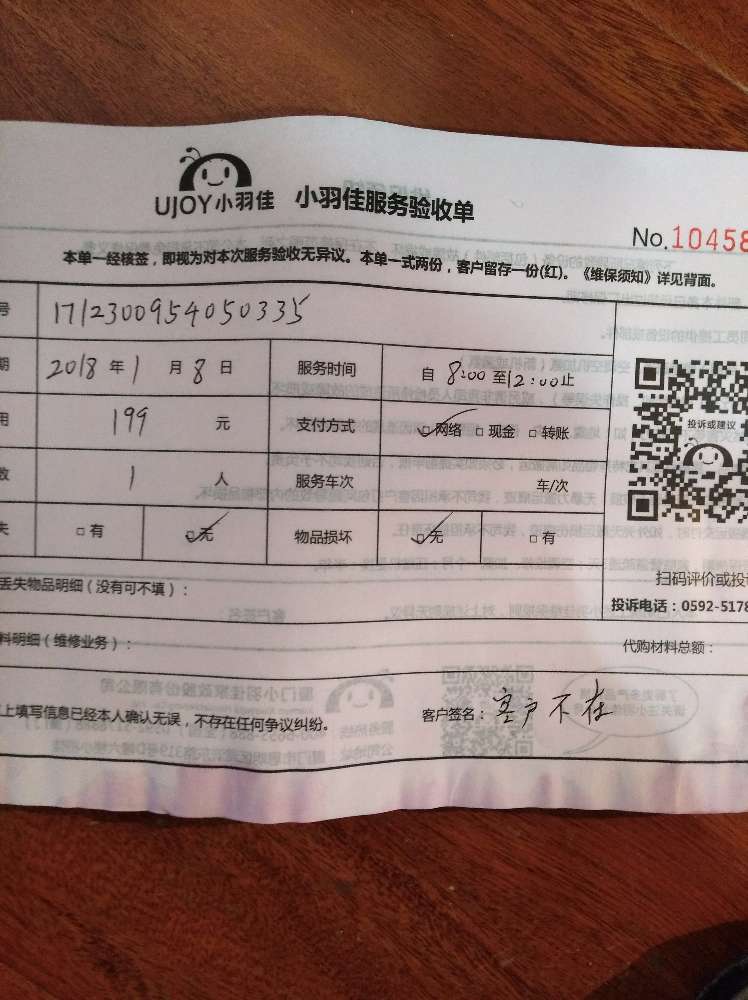 UJOY小羽佳 小羽佳服务验收单
No.10458
本单一经核签，即视为对本次服务验收无异议。本单一式两份，客户留存一份(红)。《维保须知》详见背面。
号 1712300954050335
期 2018年1月8日 服务时间 自 8:00 至12:00止
用 199 元 支付方式 网络 现金 转账
投诉或建议
数 1 人 服务车次 车/次
失 有 无 物品损坏 无 有
扫码评价或投
丢失物品明细（没有可不填）：
投诉电话：0592-5178
料明细（维修业务）： 代购材料总额：
上填写信息已经本人确认无误，不存在任何争议纠纷。 客户签名：客户不在